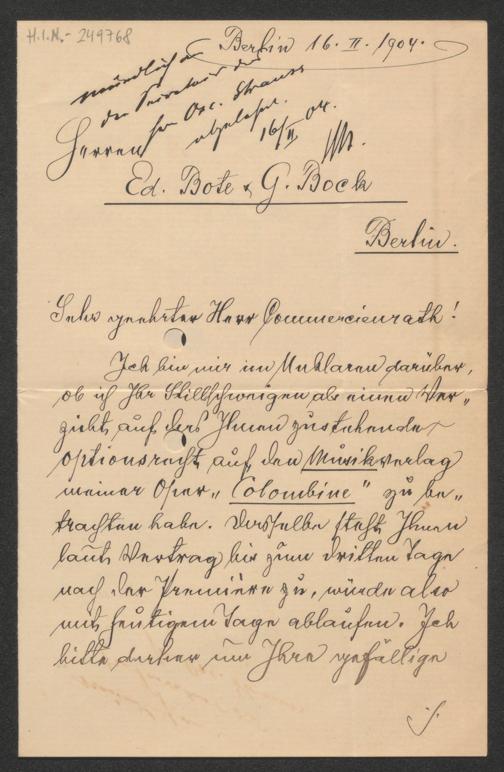 H.I.N.- 249768
Berlin 16. II. 1904.
mündlich an
den Secretair des
Hr Osc. Strauss
abgelehnt.
16/II 04.
Herren
Ed. Bote & G. Bock
Berlin.
Sehr geehrter Herr Commercienrath!
Ich bin mir im Unklaren darüber,
ob ich Ihr Stillschweigen als einen Ver„
zicht auf das Ihnen zustehende
Optionsrecht auf den Musikverlag
meiner Oper „Colombine" zu be„
trachten habe. Dasselbe steht Ihnen
laut Vertrag bis zum dritten Tage
nach der Première zu, würde also
mit heutigem Tage ablaufen. Ich
bitte daher um Ihre gefällige